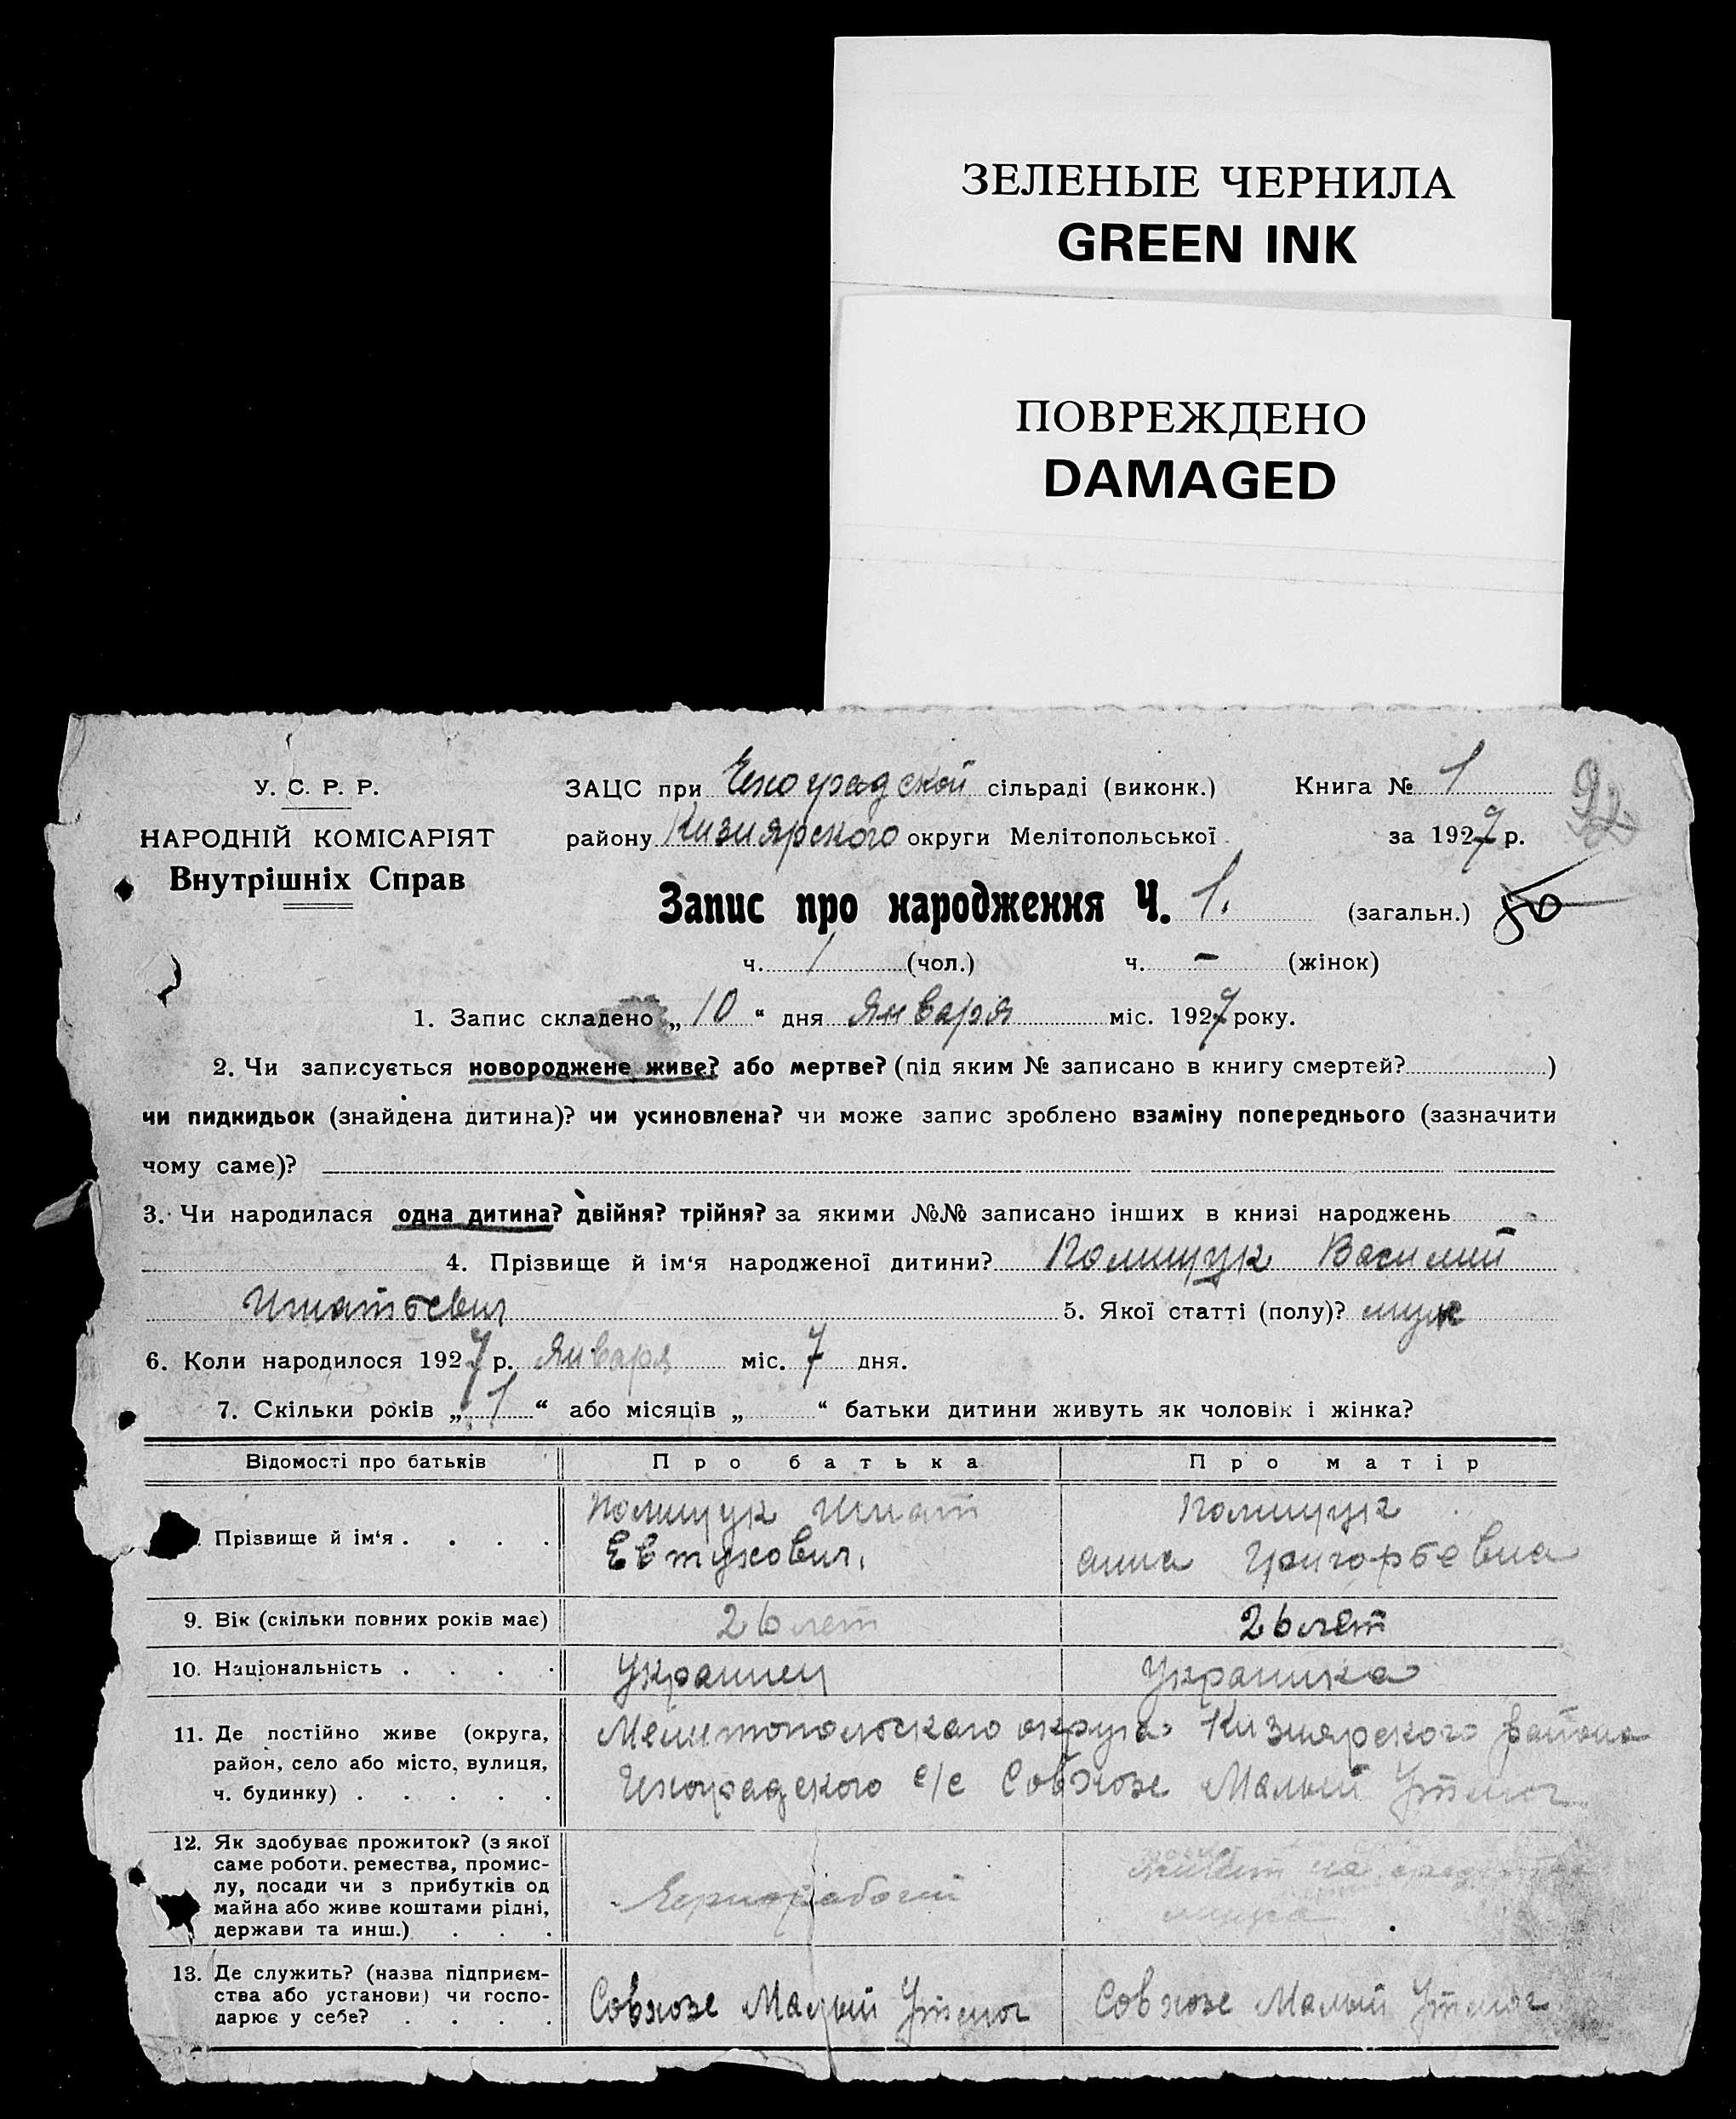 ЗЕЛЕНЫЕ ЧЕРНИЛА
GREEN INK
ПОВРЕЖДЕНО
DAMAGED
У. С. Р. Р.
НАРОДНІЙ КОМІСАРІЯТ
Внутрішніх Справ
ЗАЦС при сільраді (виконк.) Книга № 1
району Кизиярского округи Мелітопольської за 1927 р.
92
Запис про народження Ч. 1. (загальн.) 50
ч. 1 (чол.) ч. – (жінок)
1. Запис складено „ 10 “ дня Января міс. 1927 року.
2. Чи записується новороджене живе? або мертве? (під яким № записано в книгу смертей? )
чи пидкидьок (знайдена дитина)? чи усиновлена? чи може запис зроблено взаміну попереднього (зазначити
чому саме)?
3. Чи народилася одна дитина? двійня? трійня? за якими №№ записано інших в книзі народжень
4. Прізвище й ім‘я народженої дитини? Полищук Василий
Игнатьевич 5. Якої статті (полу)? муж
6. Коли народилося 1927 р. Января міс. 7 дня.
7. Скільки років „ 1 “ або місяців „ “ батьки дитини живуть як чоловік і жінка?
Відомості про батьків Про батька Про матір
Прізвище й ім‘я . . . . Полищук Игнат Евтухович. Полищук Анна Григорьевна
9. Вік (скільки повних років має) 26 лет 26 лет
10. Національність . . . . Украинец Украинка
11. Де постійно живе (округа, Мелитопольского округа Кизиярского района
район, село або місто, вулиця, с/с Совхозе Малый Утлюг
ч. будинку) . . . . .
12. Як здобуває прожиток? (з якої
саме роботи, ремества, промис-
лу, посади чи з прибутків од Чернорабочий на мужа
майна або живе коштами рідні,
держави та инш.) . . .
13. Де служить? (назва підприєм-
ства або установи) чи госпо- Совхозе Малый Утлюг Совхозе Малый Утлюг
дарює у себе? . . . .